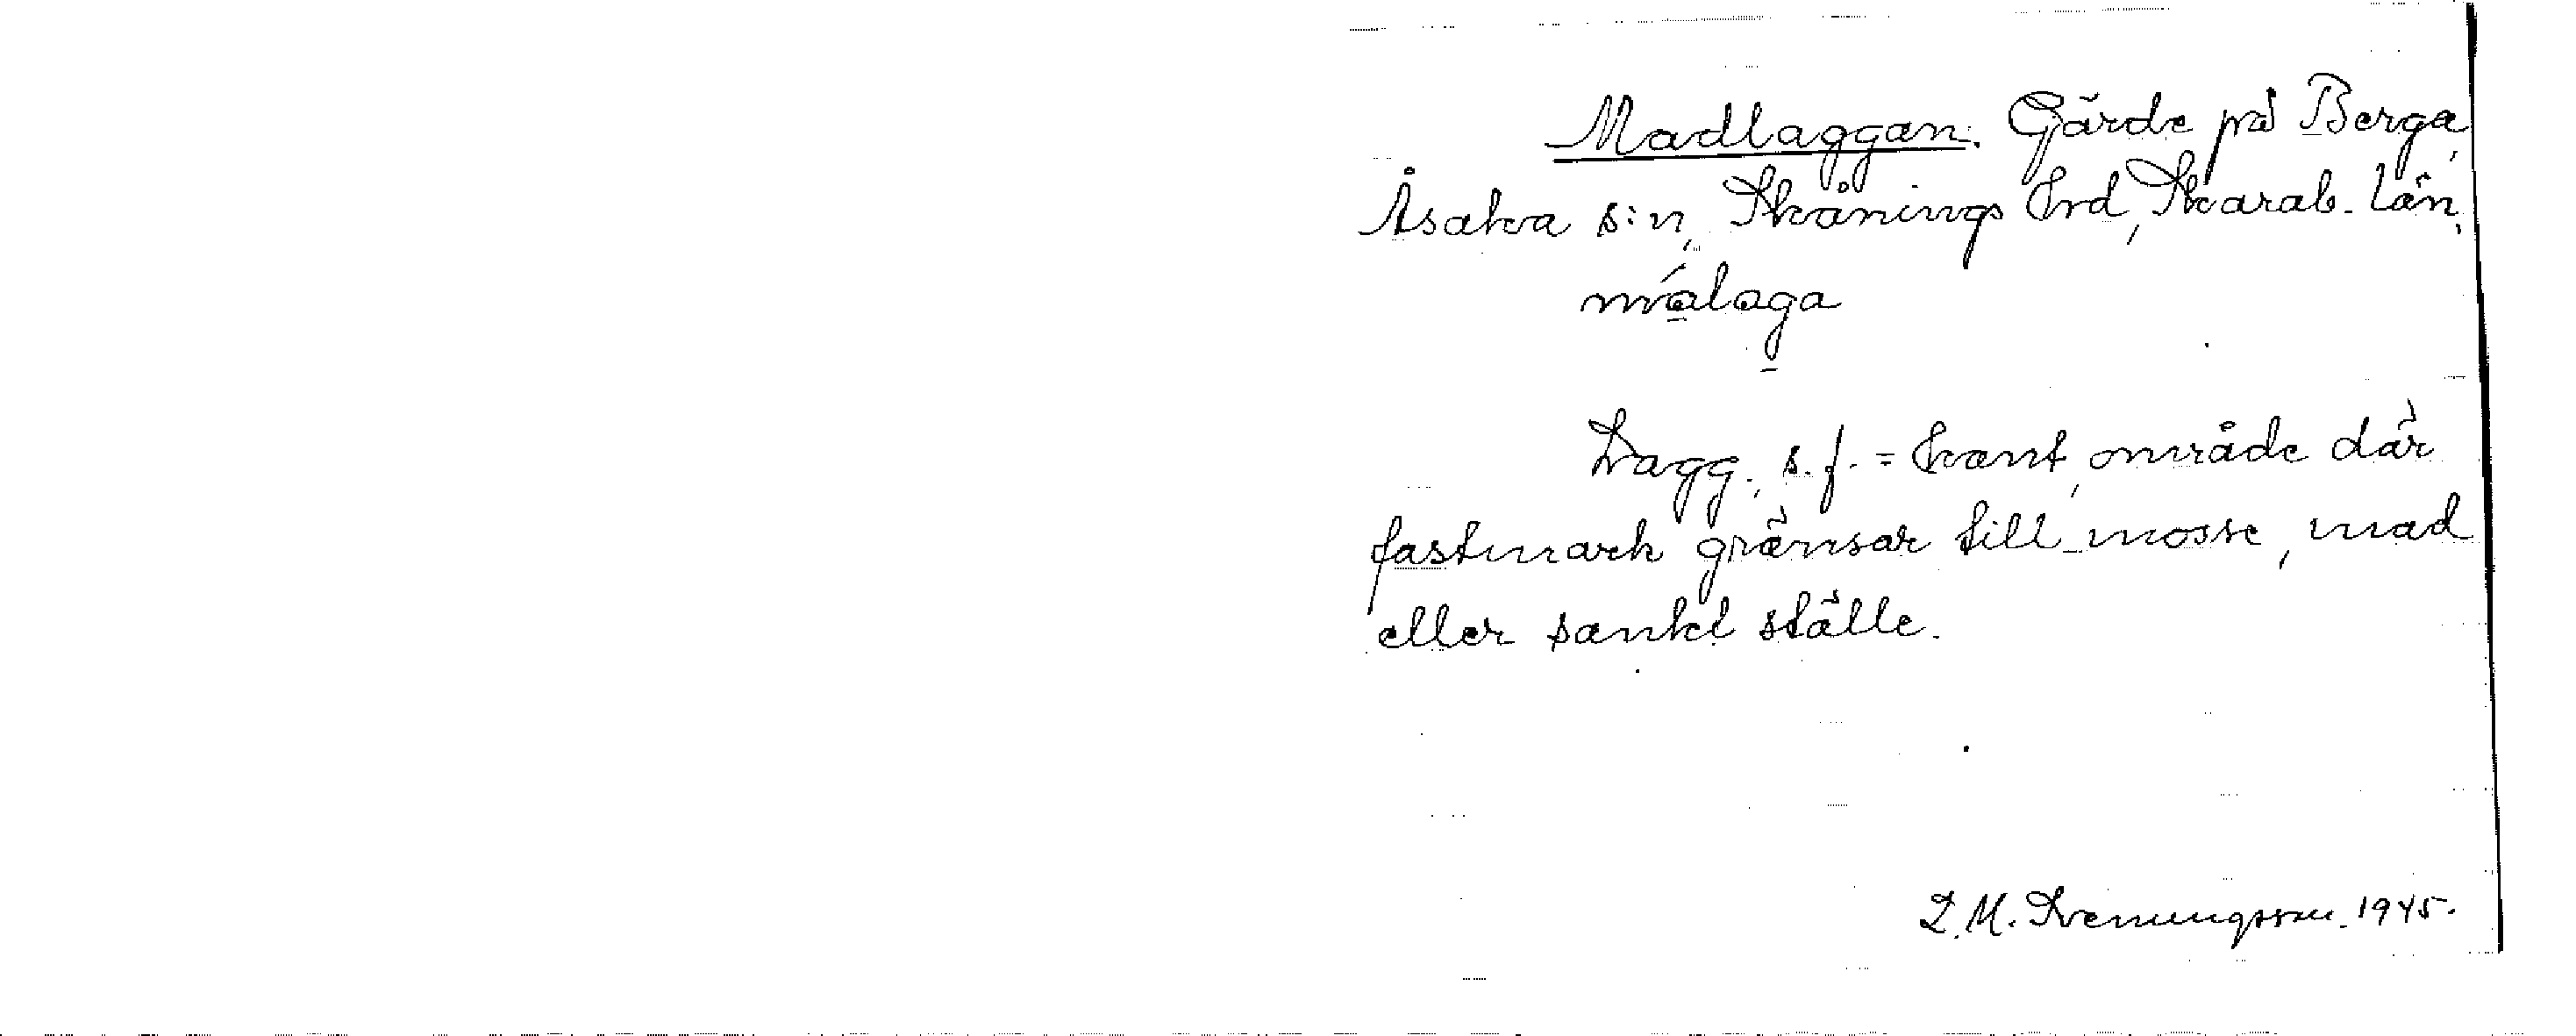 Madlaggan. Gärde på Berga,
Åsaka s:n, Skånings hrd, Skarab. län.
málaga
Lagg, s.f. = kant, område där
fastmark gränsar till mosse, mad
eller sankt ställe.
L. M. Svenungsson. 1945.